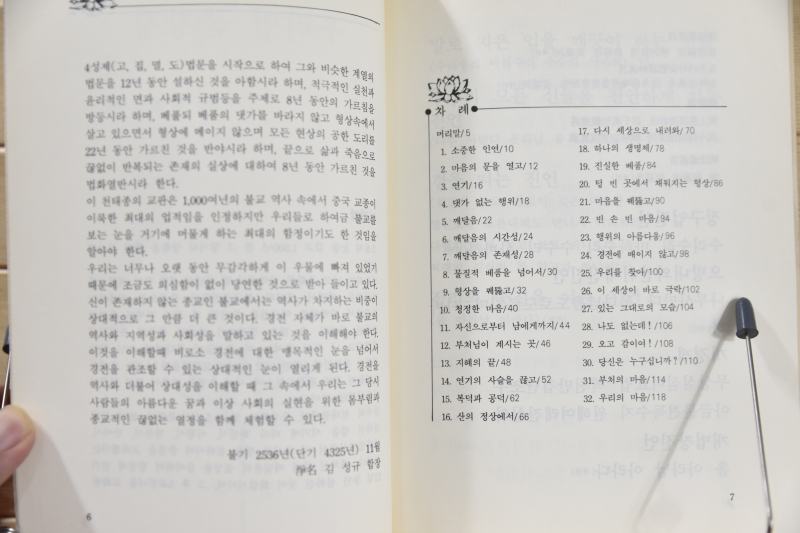 4성제(고, 집, 멸, 도)법문을 시작으로 하여 그와 비슷한 계열의
법문을 12년 동안 설하신 것을 아함시라 하며, 적극적인 실천과
윤리적인 면과 사회적 규범등을 주제로 8년 동안의 가르침을
방등시라 하며, 베풀되 베풂의 댓가를 바라지 않고 형상속에서
살고 있으면서 형상에 메이지 않으며 모든 현상의 공한 도리를
22년 동안 가르친 것을 반야시라 하며, 끝으로 삶과 죽음으로
끊없이 반복되는 존재의 실상에 대하여 8년 동안 가르친 것을
법화열반시라 한다.
이 천태종의 교판은 1,000여년의 불교 역사 속에서 중국 교종이
이룩한 최대의 업적임을 인정하지만 우리들로 하여금 불교를
보는 눈을 거기에 머물게 하는 최대의 함정이기도 한 것임을
알아야 한다.
우리는 너무나 오랫 동안 무감각하게 이 우물에 빠져 있었기
때문에 조금도 의심함이 없이 당연한 것으로 받아 들이고 있다.
신이 존재하지 않는 종교인 불교에서는 역사가 차지하는 비중이
상대적으로 그 만큼 더 큰 것이다. 경전 자체가 바로 불교의
역사와 지역성과 사회성을 말하고 있는 것을 이해해야 한다.
이것을 이해할때 비로소 경전에 대한 맹목적인 눈을 넘어서
경전을 관조할 수 있는 상대적인 눈이 열리게 된다. 경전을
역사와 더불어 상대성을 이해할 때 그 속에서 우리는 그 당시
사람들의 아름다운 꿈과 이상 사회의 실현을 위한 몸부림과
종교적인 끊없는 열정을 함께 체험할 수 있다.
불기 2536년(단기 4325년) 11월
淨名 김 성규 합장
6
차 례
머리말/5
1. 소중한 인연/10
2. 마음의 문을 열고/12
3. 연기/16
4. 댓가 없는 행위/18
5. 깨달음/22
6. 깨달음의 시간성/24
7. 깨달음의 존재성/28
8. 물질적 베품을 넘어서/30
9. 형상을 꿰뚫고/32
10. 청정한 마음/40
11. 자신으로부터 남에게까지/44
12. 부처님이 계시는 곳/46
13. 지혜의 끝/48
14. 연기의 사슬을 끊고/52
15. 복덕과 공덕/62
16. 산의 정상에서/66
17. 다시 세상으로 내려와/70
18. 하나의 생명체/78
19. 진실한 베품/84
20. 텅 빈 곳에서 채워지는 형상/86
21. 마음을 꿰뚫고/90
22. 빈 손 빈 마음/94
23. 행위의 아름다움/96
24. 경전에 매이지 않고/98
25. 우리를 찾아/100
26. 이 세상이 바로 극락/102
27. 있는 그대로의 모습/104
28. 나도 없는데!/106
29. 오고 감이여!/108
30. 당신은 누구십니까?/110
31. 부처의 마음/114
32. 우리의 마음/118
7